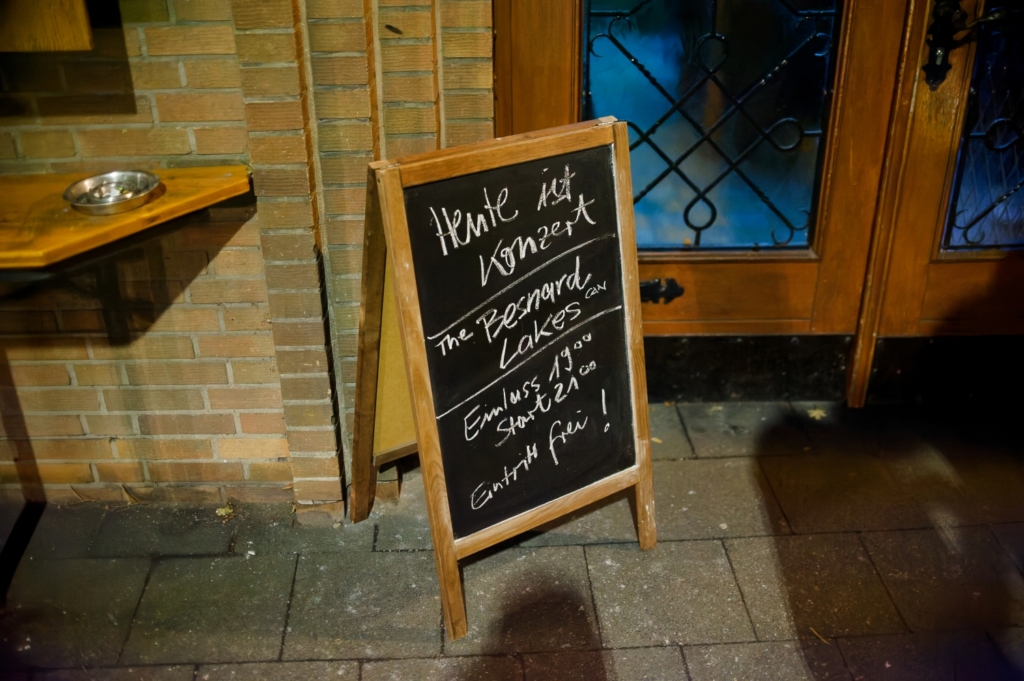 Heute ist
Konzert
The Besnard
Lakes CAN
Einlass 19⁰⁰
Start 21⁰⁰
Eintritt frei !